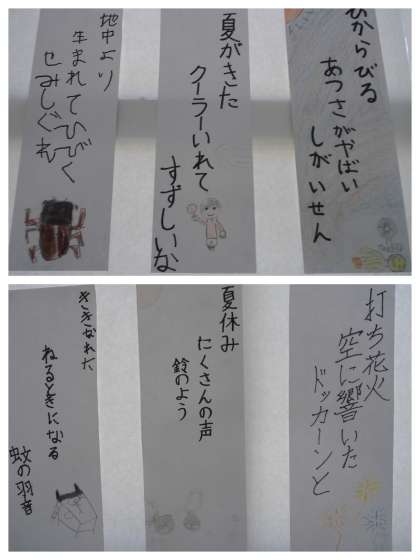 ひからびる
あつさがやばい
しがいせん
夏がきた
クーラーいれて
すずしいな
地中より
生まれてひびく
せみしぐれ
打ち花火
空に響いた
ドッカーンと
夏休み
たくさんの声
鈴のよう
ききなれた
ねるときになる
蚊の羽音